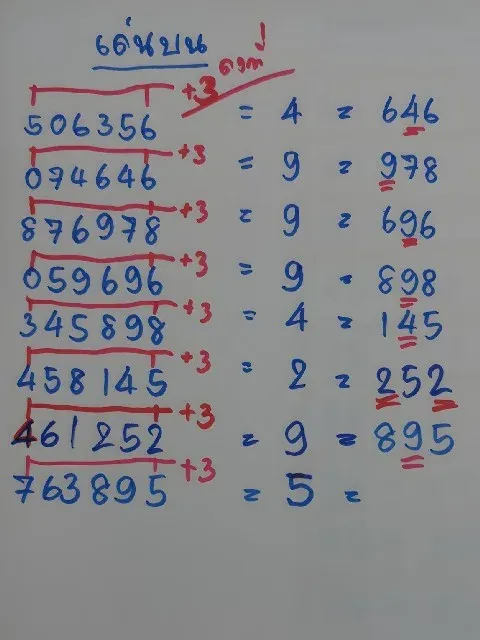 เด่นบน
+3
506356 = 4 = 646
+3
074646 = 9 = 978
+3
876978 = 9 = 696
+3
059696 = 9 = 898
+3
345898 = 4 = 145
+3
458145 = 2 = 252
+3
461252 = 9 = 895
+3
763895 = 5 =